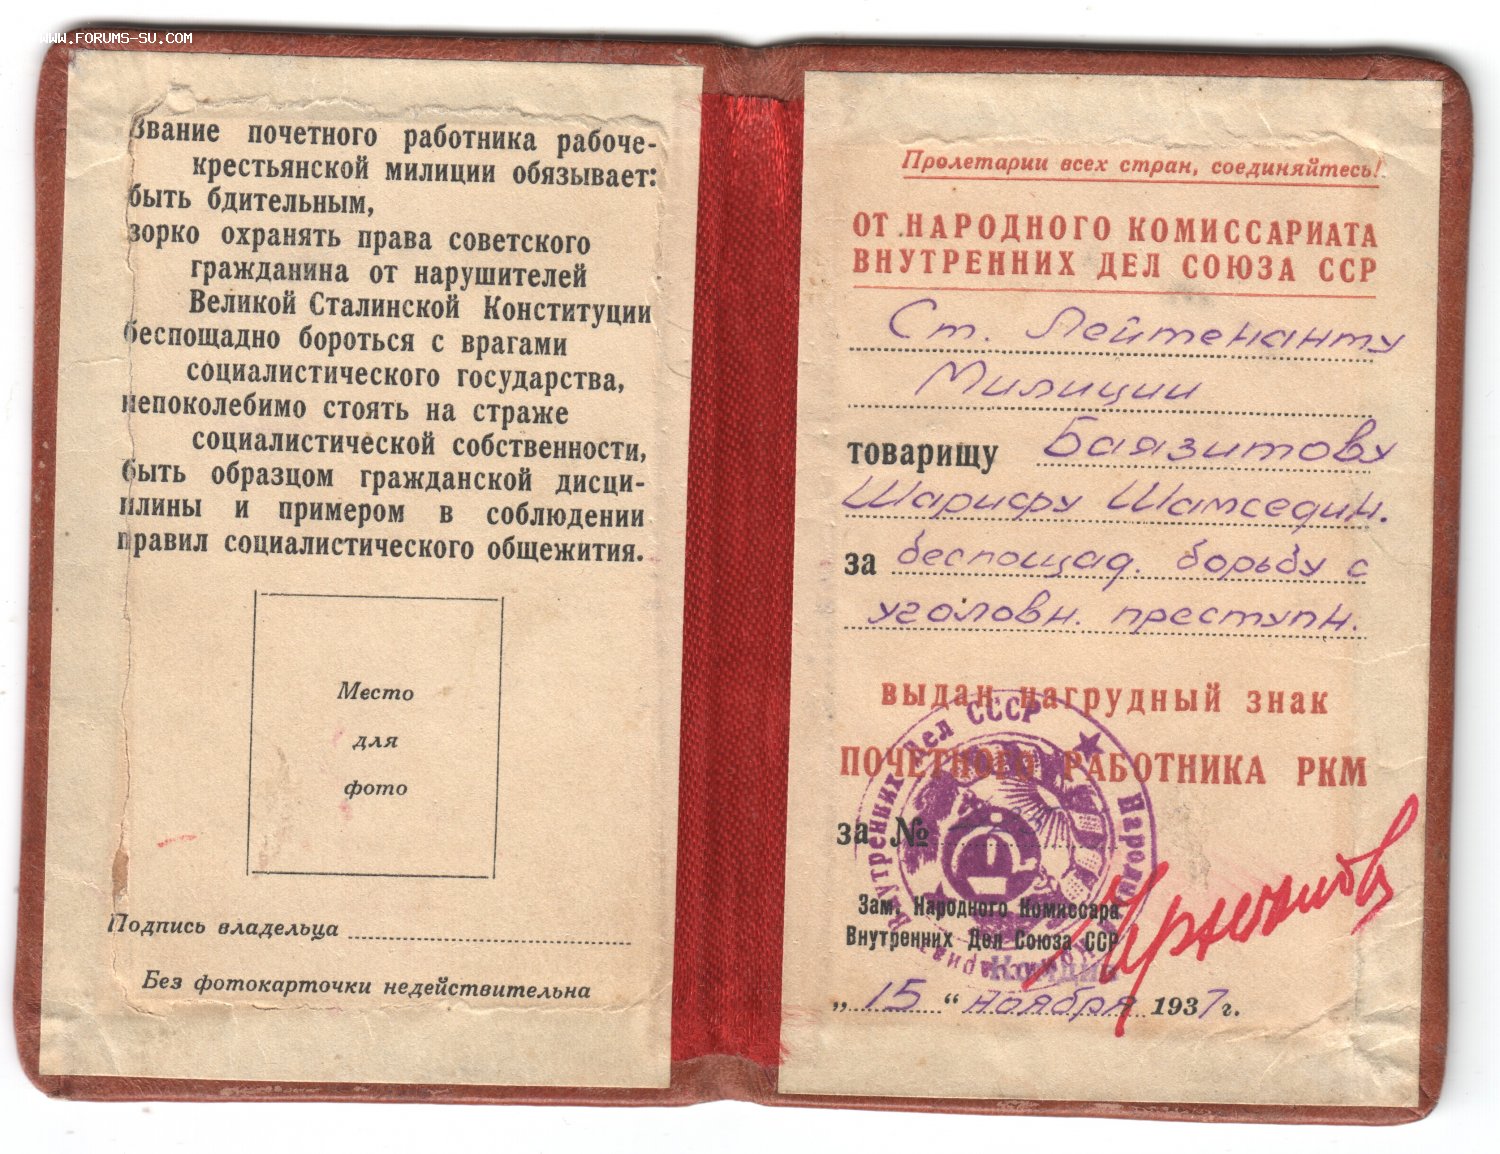 WWW.FORUMS-SU.COM
Звание почетного работника рабоче-
крестьянской милиции обязывает:
быть бдительным,
зорко охранять права советского
гражданина от нарушителей
Великой Сталинской Конституции
беспощадно бороться с врагами
социалистического государства,
непоколебимо стоять на страже
социалистической собственности,
быть образцом гражданской дисци-
плины и примером в соблюдении
правил социалистического общежития.
Место
для
фото
Подпись владельца
Без фотокарточки недействительна
Пролетарии всех стран, соединяйтесь!
ОТ НАРОДНОГО КОМИССАРИАТА
ВНУТРЕННИХ ДЕЛ СОЮЗА ССР
Ст. Лейтенанту
Милиции
товарищу Баязитову
Шарифу Шамседин.
за беспощад. борьбу с
уголовн. преступн.
выдан нагрудный знак
ПОЧЕТНОГО РАБОТНИКА РКМ
за №
Внутренних Дел СССР
Зам. Народного Комиссара
Внутренних Дел Союза ССР
„15“ ноября 1937 г.